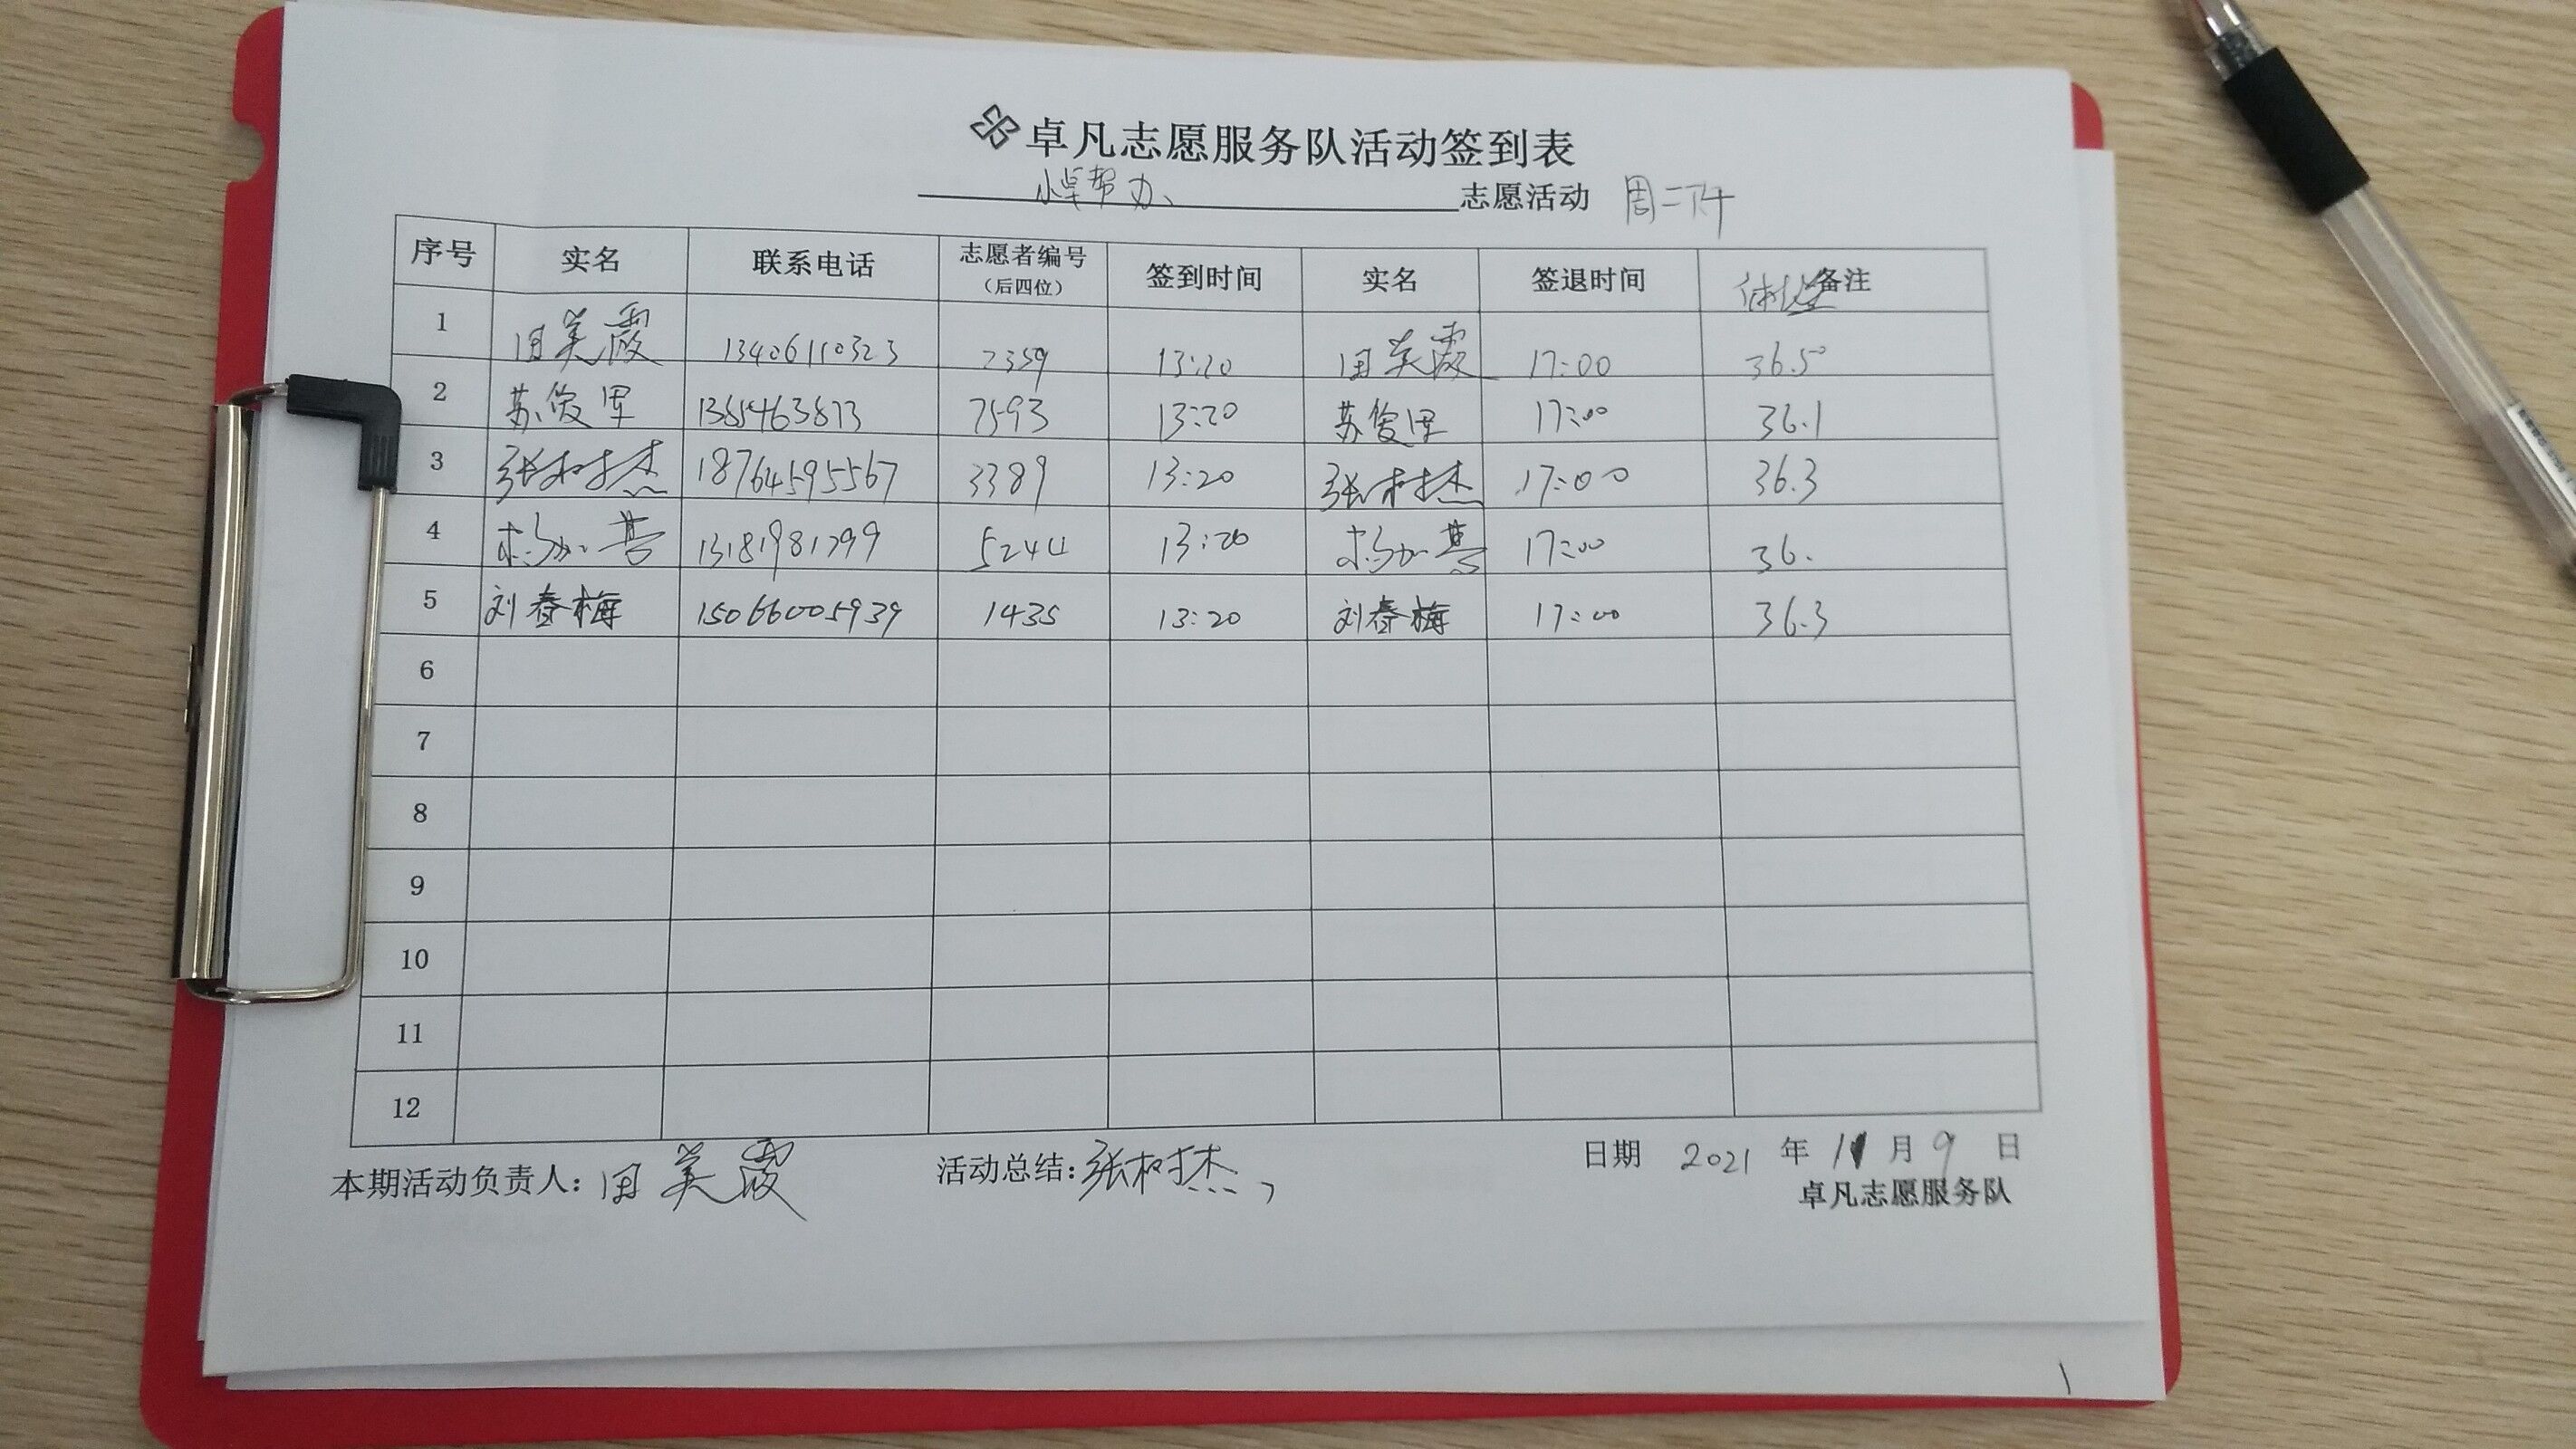 卓凡志愿服务队活动签到表
小卓帮办 志愿活动 周二下午
序号 实名 联系电话 志愿者编号 签到时间 实名 签退时间 体温 备注
(后四位)
1 田美霞 13406110323 2359 13:20 田美霞 17:00 36.5°
2 苏俊军 7593 13:20 苏俊军 17:00 36.1
3 张树杰 18764595567 3389 13:20 张树杰 17:00 36.3
4 5244 13:20 17:00 36.
5 刘春梅 15066005939 1435 13:20 刘春梅 17:00 36.3
6
7
8
9
10
11
12
本期活动负责人: 田美霞 活动总结: 张树杰 日期 2021 年 11 月 9 日
卓凡志愿服务队